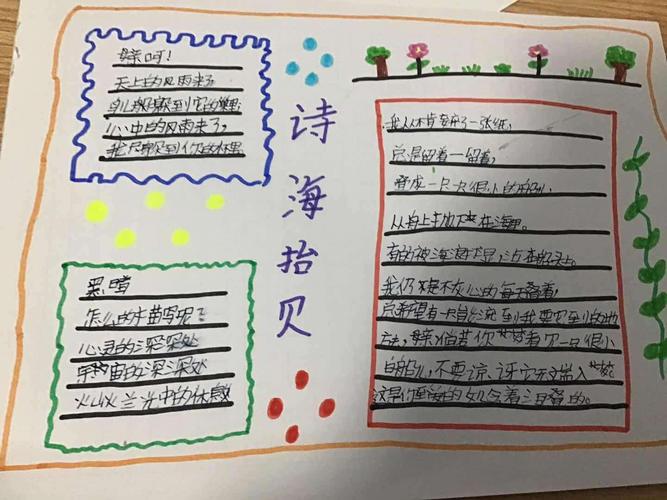 母亲呵!
天上的风雨来了
鸟儿躲到它的巢里;
心中的风雨来了,
我只躲到你的怀里
诗海拾贝
黑暗
怎么的描写呢?
心灵的深深处
宇宙的深深处
灿烂光中的休息
我从不肯弃了一张纸,
总是留着一留着,
叠成一只一只很小的船儿
从舟上抛下在海里。
有的被海浪打湿,沾在船头上。
我仍不灰心的每天叠着,
总希望有一只能流到我要它到的地
方去,母亲,倘若你梦着见一只很小
的船儿,不要惊讶它无端入梦
这是你至爱的女儿含着泪叠的。